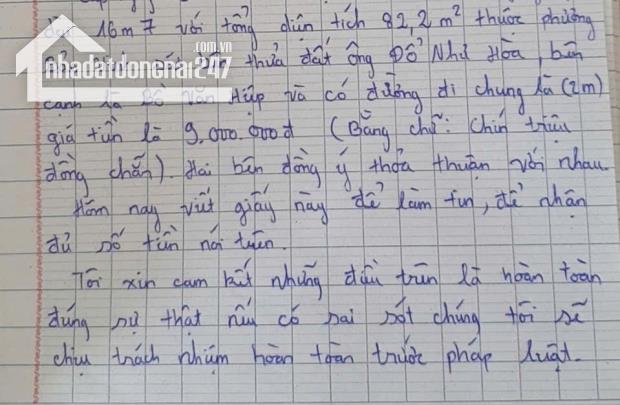 dài 16m7 với tổng diện tích 82,2 m² thuộc phường
thửa đất ông Đỗ Như Hòa, bên
cạnh là Hiệp và có đường đi chung là (2m)
giá tiền là 9.000.000đ (Bằng chữ: Chín triệu
đồng chẵn). Hai bên đồng ý thỏa thuận với nhau.
Hôm nay viết giấy này để làm tin, để nhận
đủ số tiền nói trên.
Tôi xin cam kết những điều trên là hoàn toàn
đúng sự thật nếu có sai sót chúng tôi sẽ
chịu trách nhiệm hoàn toàn trước pháp luật.
nhadatdongnai247.com.vn